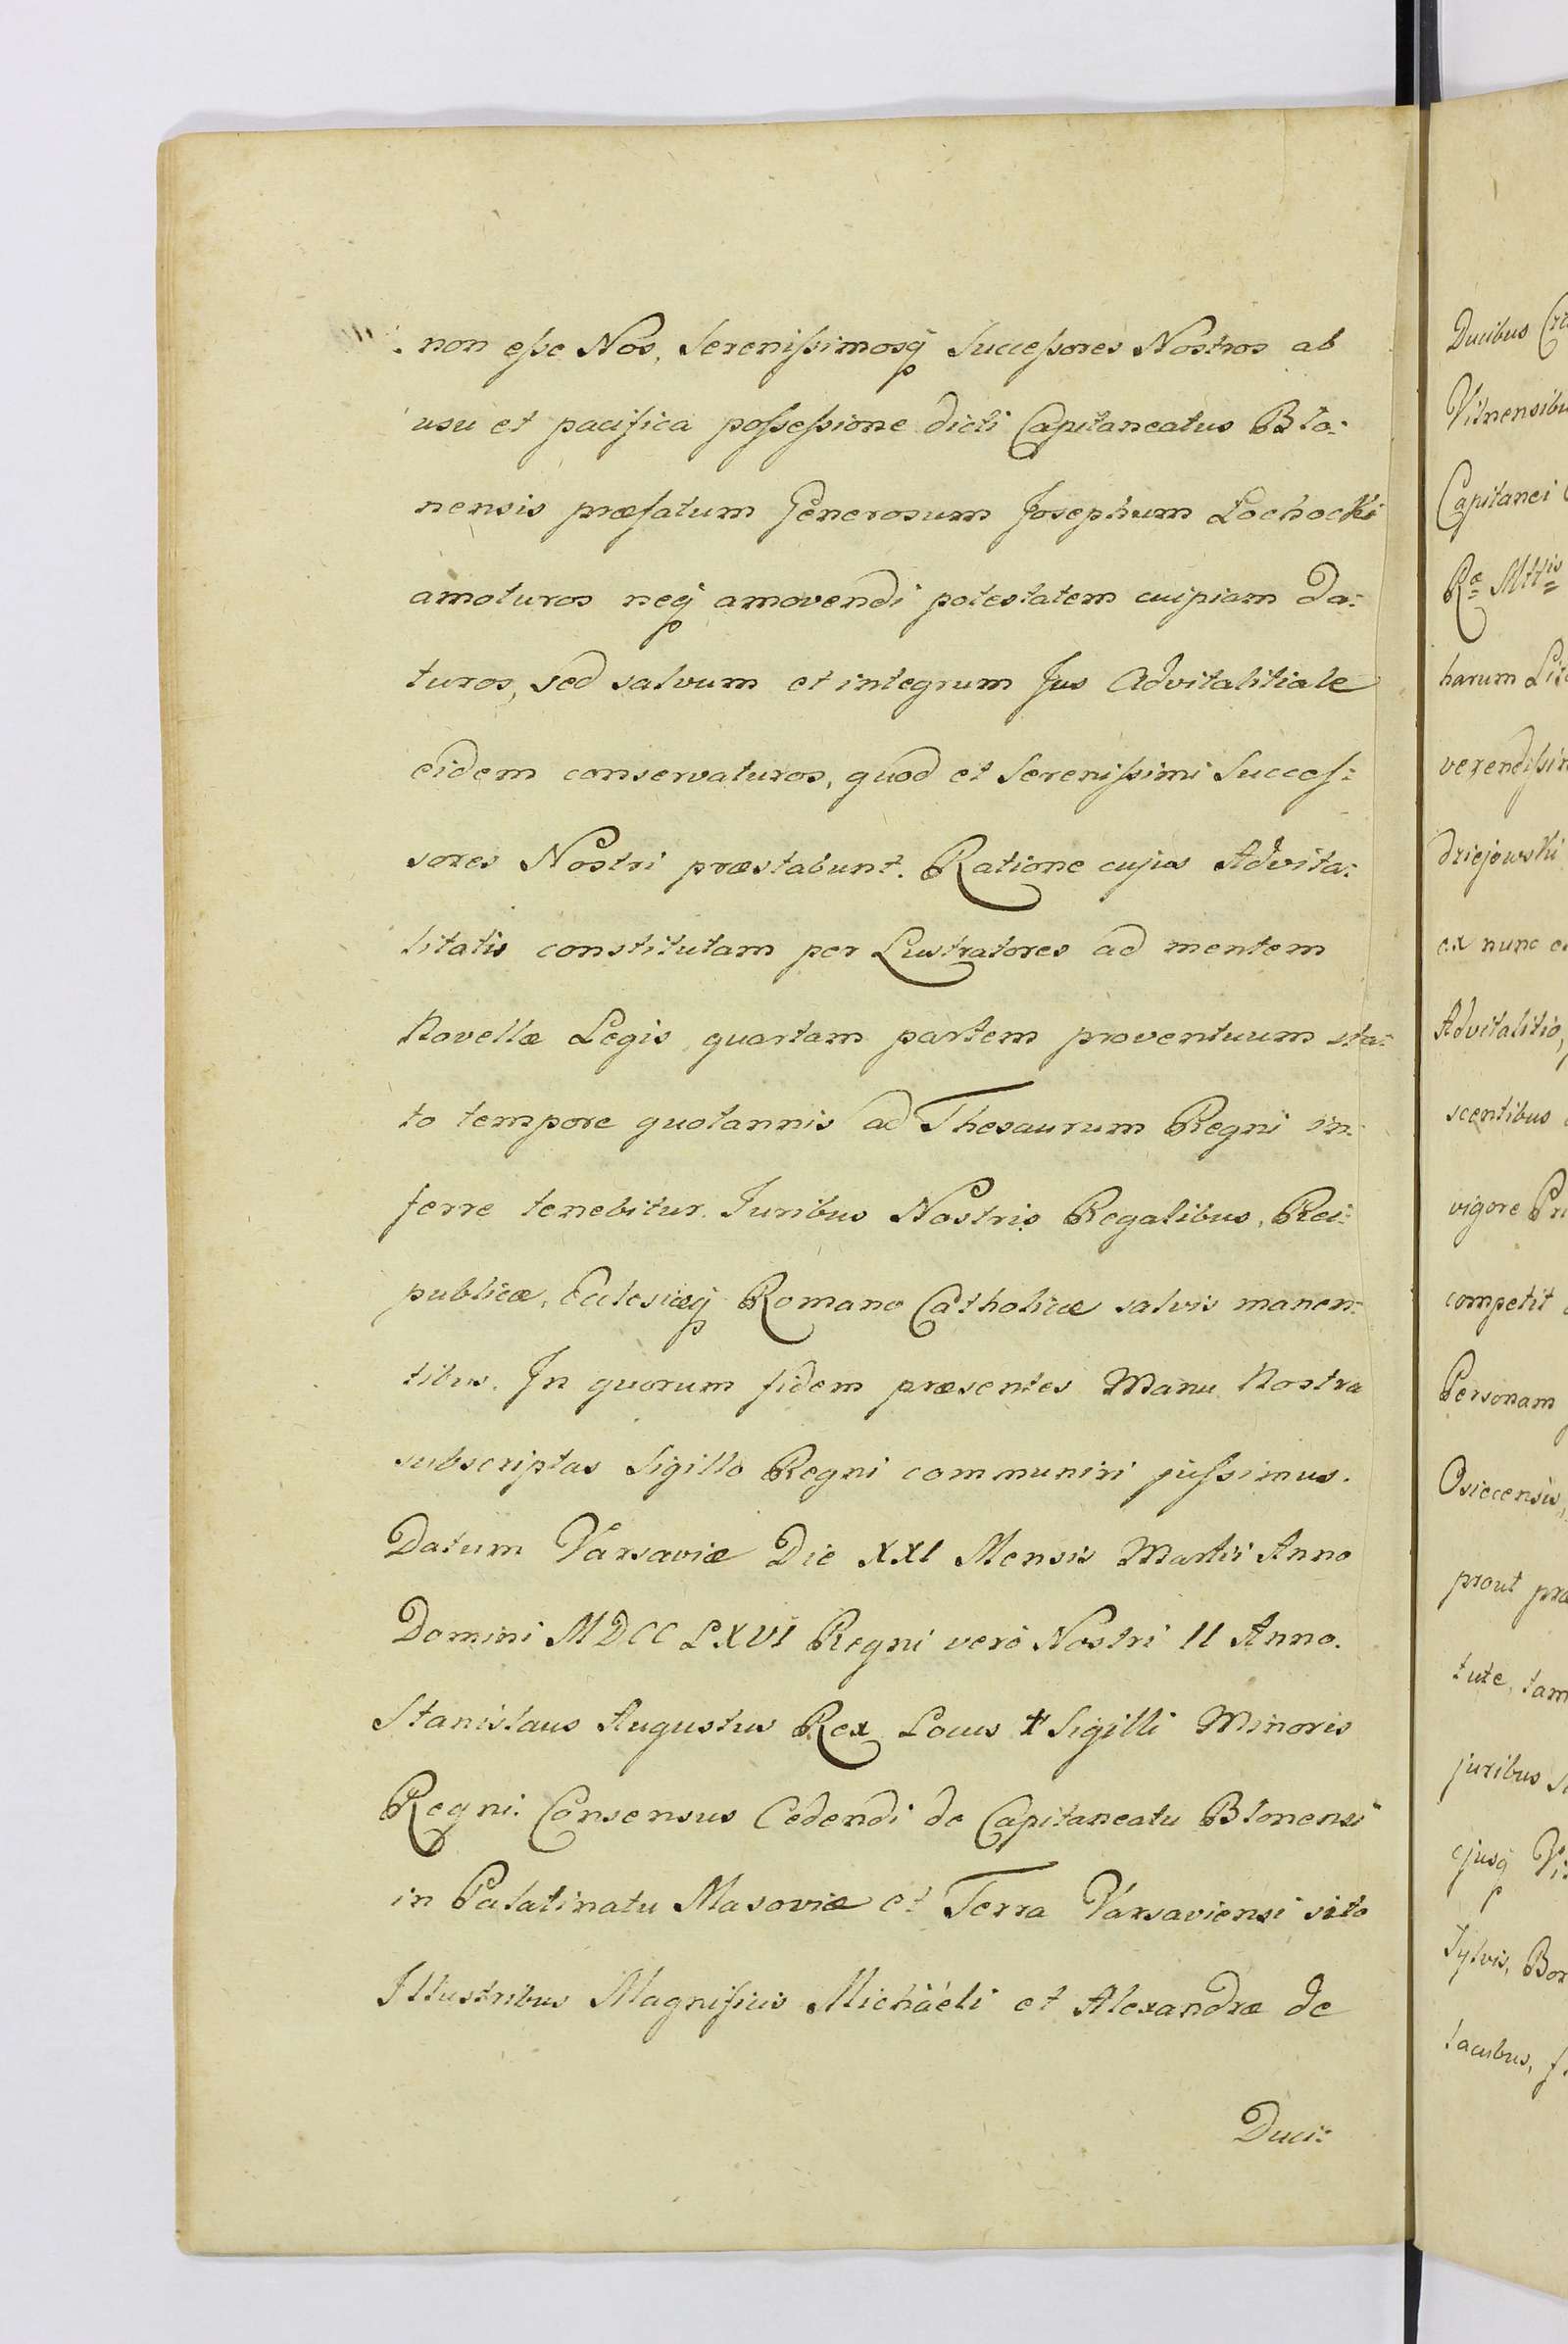 non eſse Nos, Sereniſsimosq̃ Succeſsores Nostros ab
usu et pacifica poſseſsione dicti Capitaneatus Blo:
nensis præfatum Generosum Josephum Lochocki
amoturos neq̃ amovendi potestatem cuipiam da:
turos, sed salvum et integrum Jus Advitalitiale
eidem conservaturos, quod et Sereniſsimi Succeſ:
sores Nostri præstabunt. Ratione cujus Advita:
litatis constitutam per Lustratores ad mentem
Novellæ Legis quartam partem proventuum sta:
to tempore quotannis ad Thesaurum Regni in:
ferre tenebitur. Juribus Nostris Regalibus, Rei:
publicæ, Ecclesiæq̃ Romano Catholicæ salvis manen:
tibus. In quorum fidem præsentes Manu Nostra
subscriptas Sigillo Regni communiri juſsimus.
Datum Varsaviæ Die XXI Mensis Martii Anno
Domini MDCCLXVI Regni verò Nostri II Anno.
Stanislaus Augustus Rex Locus ✝ Sigilli Minoris
Regni. Consensus Cedendi de Capitaneatu Blonensi
in Palatinatu Masoviæ et Terra Varsaviensi sito
Illustribus Magnificis Michaéli et Alexandræ de
Duci:
Ducibus
Vilnensibu
Capitanei
Ræ Mttis
harum
verendiſsim
dziejowski
ex nunc
Advitalitio,
scentibus
vigore
competit
Personam
Osiecensis,
prout præ
tute, tam
juribus
ejusq̃
Sylvis, Bor
lacubus,